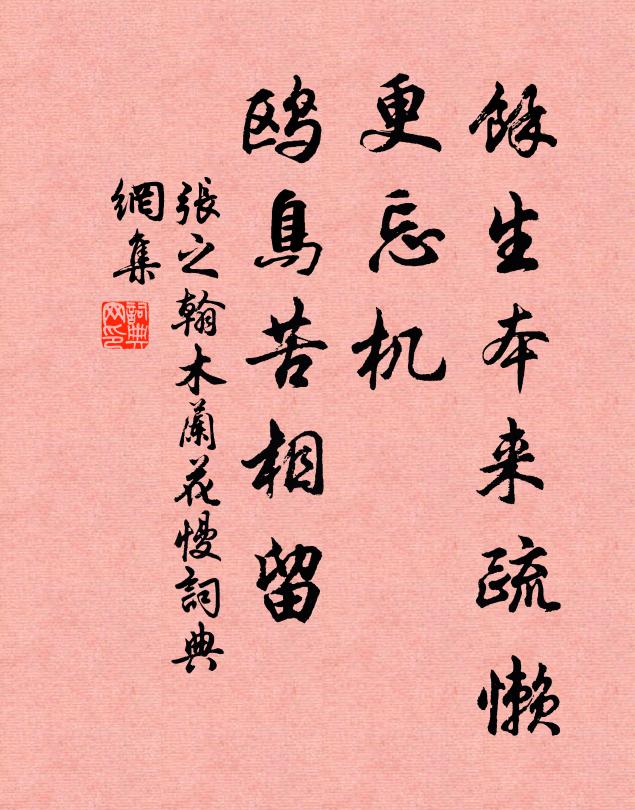 餘生本来疏懒
更忘机
鸥鳥苦相留
張之翰木蘭花慢詞典
網集
詞典网印